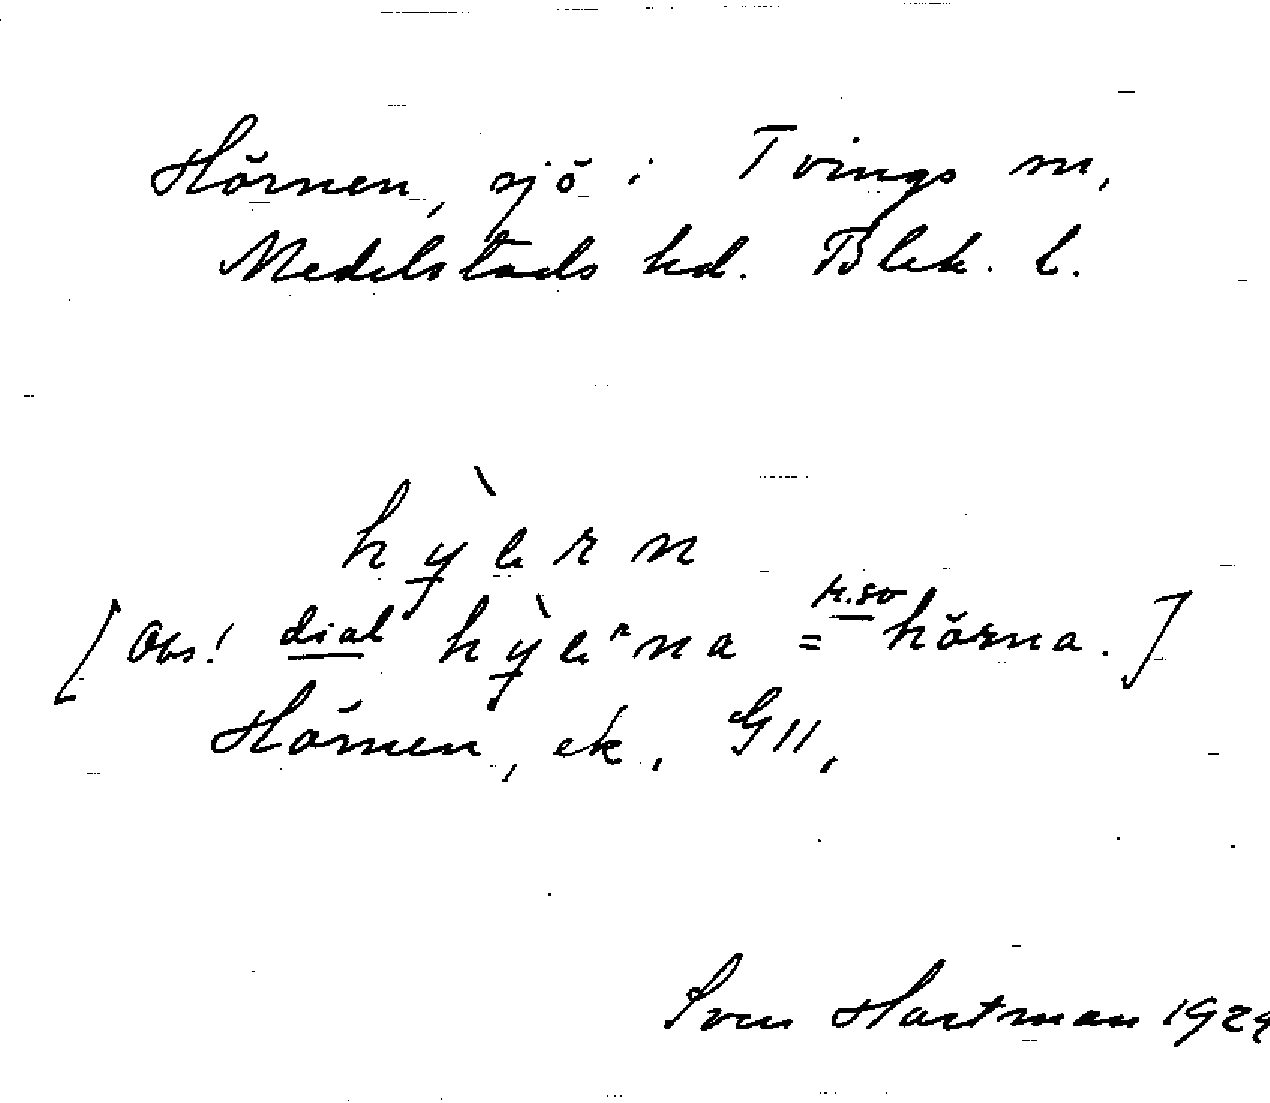 Hörnen, sjö i Tvings sn,
Medelstads hd. Blek. l.
hỳern
[Obs! dial hỳerna = r.so hörna.]
Hörnen, ek. G11,
Sven Hartman 1929